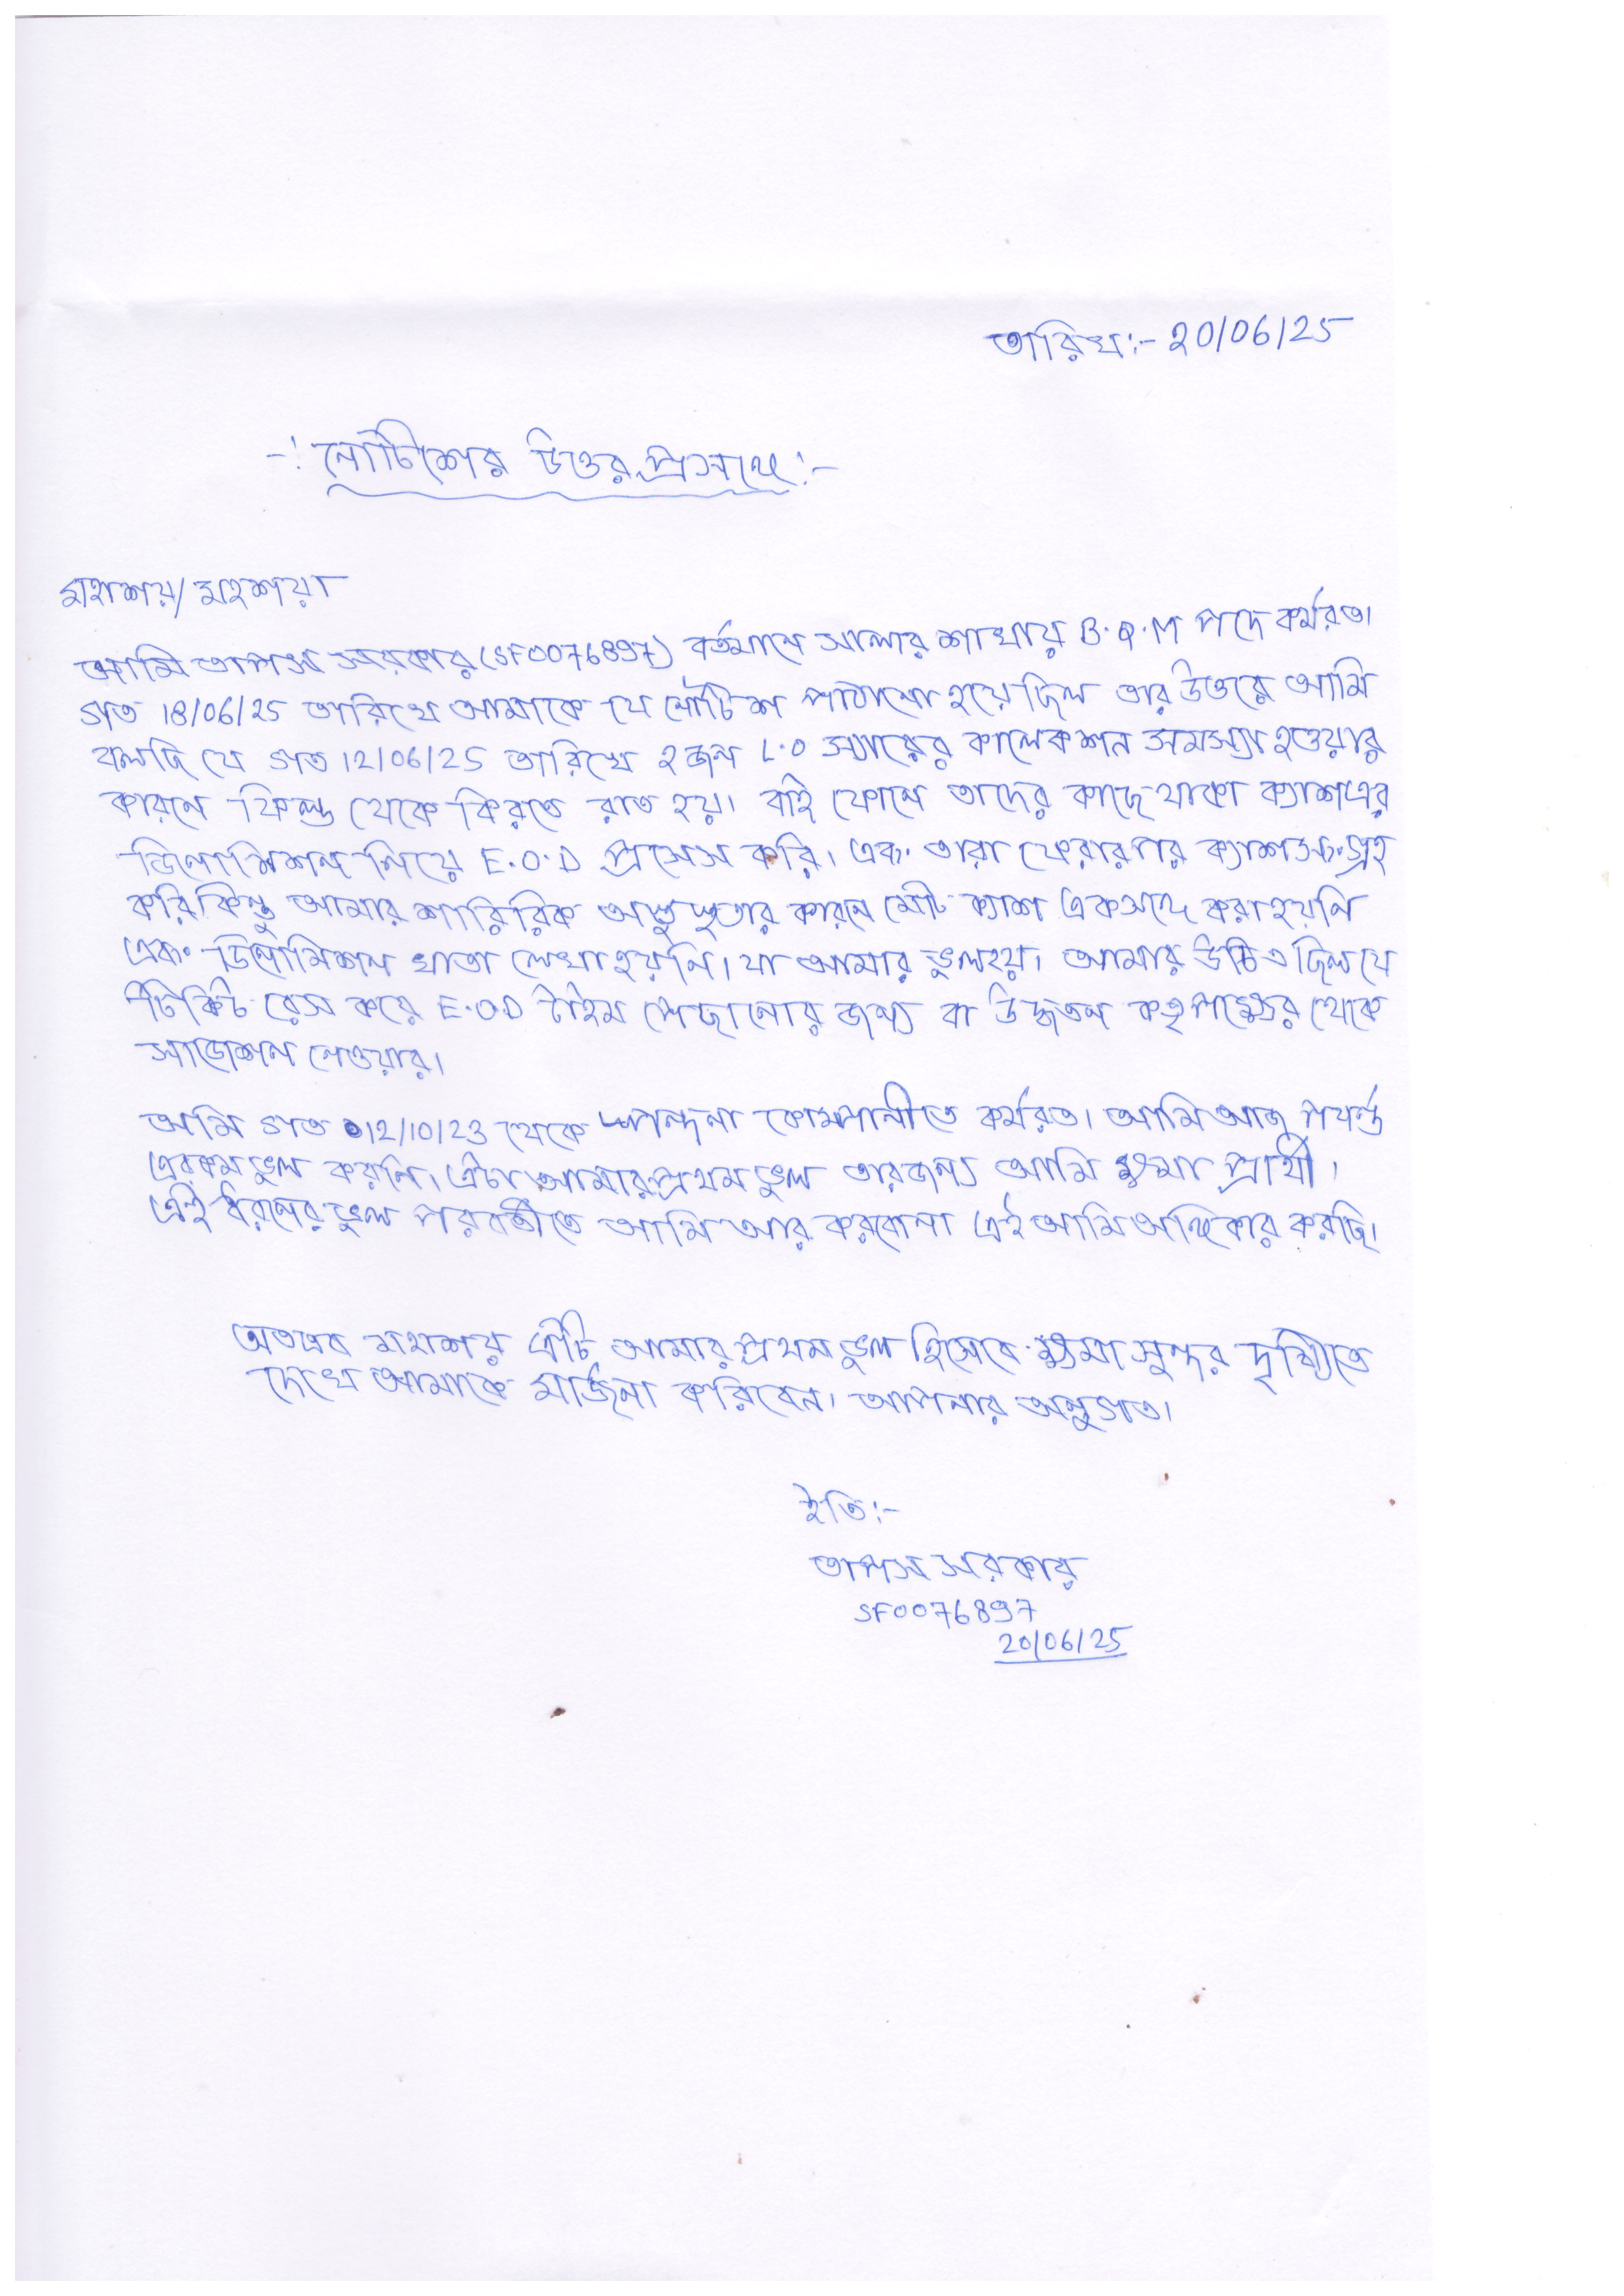 তারিখ:- 20/06/25
-: নোটিশের উত্তর প্রসঙ্গে :-
মহাশয়/মহশয়া
আমি তাপস সরকার (SF0076897) বর্তমানে সালার শাখায় B.Q.M পদে কর্মরত।
গত 18/06/25 তারিখে আমাকে যে নোটিশ পাঠানো হয়েছিল তার উত্তরে আমি
বলছি যে গত 12/06/25 তারিখে ২জন L.O স্যারের কালেকশন সমস্যা হওয়ার
কারনে ফিল্ড থেকে ফিরতে রাত হয়। বাই ফোনে তাদের কাছে থাকা ক্যাশএর
ডিনোমিশন নিয়ে E.O.D প্রসেস করি। এবং তারা ফেরার পর ক্যাশ সংগ্রহ
করি কিন্তু আমার শারিরিক অসুস্থতার কারনে মোট ক্যাশ একসঙ্গে করা হয়নি
এবং ডিনোমিশন খাতা লেখা হয়নি। যা আমার ভুল হয়। আমার উচিত ছিল যে
টিকিট রেস করে E.O.D টাইম পেছানোর জন্য বা উদ্ধতন কতৃপক্ষের থেকে
সাজেশন নেওয়ার।
আমি গত 012/10/23 থেকে স্পন্দনা কোম্পানীতে কর্মরত। আমি আজ পযর্ন্ত
এরকম ভুল করিনি। এটা আমার প্রথম ভুল তারজন্য আমি ক্ষমা প্রার্থী।
এই ধরনের ভুল পরবর্তীতে আমি আর করবোনা এই আমি অঙ্গিকার করছি।
অতএব মহাশয় এটি আমার প্রথম ভুল হিসেবে ক্ষমা সুন্দর দৃষ্টিতে
দেখে আমাকে মার্জনা করিবেন। আপনার অনুগত।
ইতি:-
তাপস সরকার
SF0076897
20/06/25